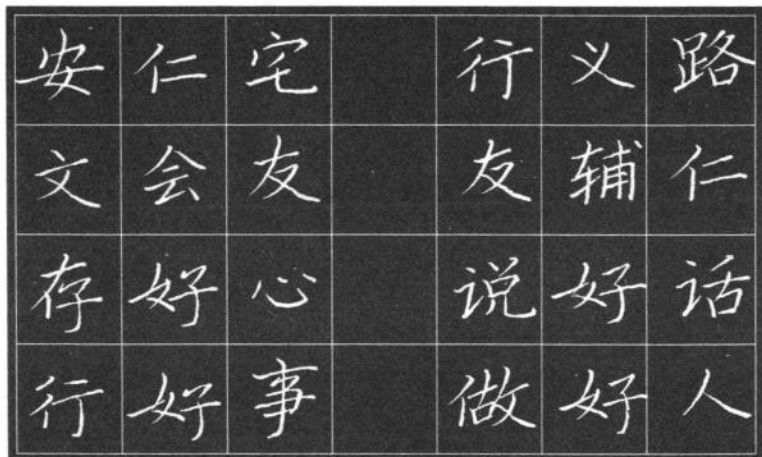 安仁宅 行义路
文会友 友辅仁
存好心 说好话
行好事 做好人